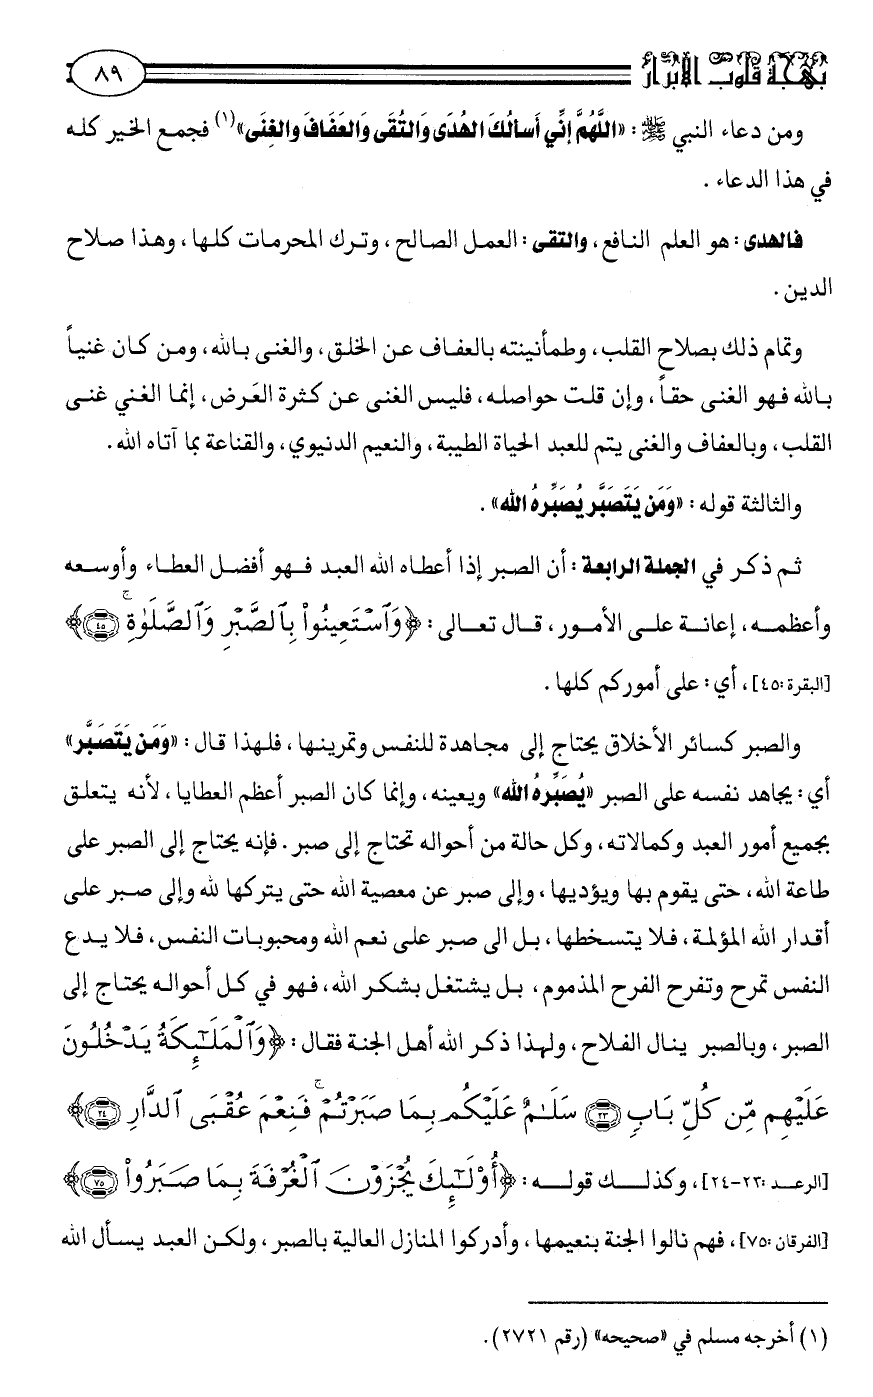 بهجة قلوب الأبرار
٨٩
ومن دعاء النبي ﷺ: «اللَّهُمَّ إِنِّي أَسأَلُكَ الهُدَى وَالتُّقَى وَالعَفَافَ وَالغِنَى»(١) فجمع الخير كله
في هذا الدعاء .
فالهدى: هو العلم النافع، والتقى: العمل الصالح، وترك المحرمات كلها، وهذا صلاح
الدين.
وتمام ذلك بصلاح القلب، وطمأنينته بالعفاف عن الخلق، والغنى بالله، ومن كان غنياً
بالله فهو الغنى حقاً، وإن قلت حواصله، فليس الغنى عن كثرة العَرض، إنما الغني غنى
القلب، وبالعفاف والغنى يتم للعبد الحياة الطيبة، والنعيم الدنيوي، والقناعة بما آتاه الله.
والثالثة قوله: «وَمَن يَتَصَبَّر يُصَبِّرهُ الله».
ثم ذكر في الجملة الرابعة: أن الصبر إذا أعطاه الله العبد فهو أفضل العطاء وأوسعه
وأعظمه، إعانة على الأمور، قال تعالى: ﴿وَٱسْتَعِينُوا۟ بِٱلصَّبْرِ وَٱلصَّلَوٰةِ ۚ ٤٥﴾
[البقرة:٤٥]، أي: على أموركم كلها.
والصبر كسائر الأخلاق يحتاج إلى مجاهدة للنفس وتمرينها، فلهذا قال: «وَمَن يَتَصَبَّر»
أي: يجاهد نفسه على الصبر «يُصَبِّرهُ الله» ويعينه، وإنما كان الصبر أعظم العطايا، لأنه يتعلق
بجميع أمور العبد وكمالاته، وكل حالة من أحواله تحتاج إلى صبر. فإنه يحتاج إلى الصبر على
طاعة الله، حتى يقوم بها ويؤديها، وإلى صبر عن معصية الله حتى يتركها لله وإلى صبر على
أقدار الله المؤلمة، فلا يتسخطها، بل الى صبر على نعم الله ومحبوبات النفس، فلا يدع
النفس تمرح وتفرح الفرح المذموم، بل يشتغل بشكر الله، فهو في كل أحواله يحتاج إلى
الصبر، وبالصبر ينال الفلاح، ولهذا ذكر الله أهل الجنة فقال: ﴿وَٱلْمَلَـٰٓئِكَةُ يَدْخُلُونَ
عَلَيْهِم مِّن كُلِّ بَابٍ ٢٣ سَلَـٰمٌ عَلَيْكُم بِمَا صَبَرْتُمْ ۚ فَنِعْمَ عُقْبَى ٱلدَّارِ ٢٤﴾
[الرعد:٢٣-٢٤]، وكذلك قوله: ﴿أُو۟لَـٰٓئِكَ يُجْزَوْنَ ٱلْغُرْفَةَ بِمَا صَبَرُوا۟ ٧٥﴾
[الفرقان:٧٥]، فهم نالوا الجنة بنعيمها، وأدركوا المنازل العالية بالصبر، ولكن العبد يسأل الله
(١) أخرجه مسلم في «صحيحه» (رقم ٢٧٢١).